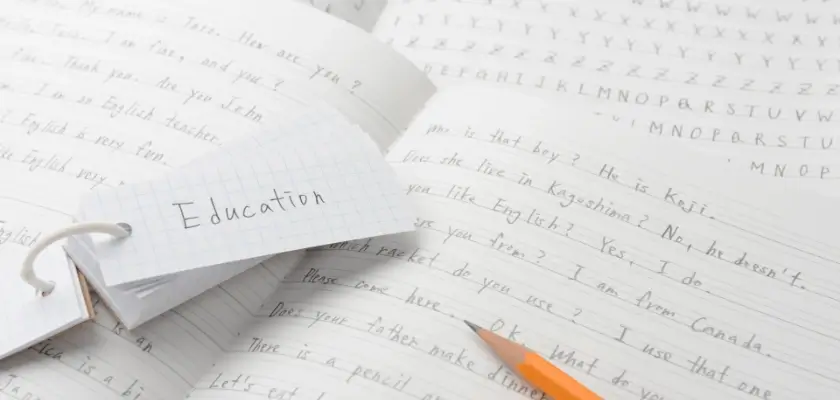 My name is Tare. How are you?
Hello, Tare. I am fine, and you?
Fine. Thank you. Are you John.
I am an English teacher.
English is very fun.
like English very
English
Education
is an
ica is a bi
Japa
W W W W
X X X X X X
Y Y Y Y Y Y Y Y
Z Z Z Z Z Z Z Z
D E F G H I J K L M N O P Q R S T U V W
M N O P Q R S T U
M N O P
is that boy? He is Koji.
Does she live in Kagoshima? No, he doesn't.
you like English? Yes, I do.
are you from? I am from Canada.
which racket do you use? I use that one
Please come here. Ok. What do you
Does your father make dinner
There is a pencil
Let's eat